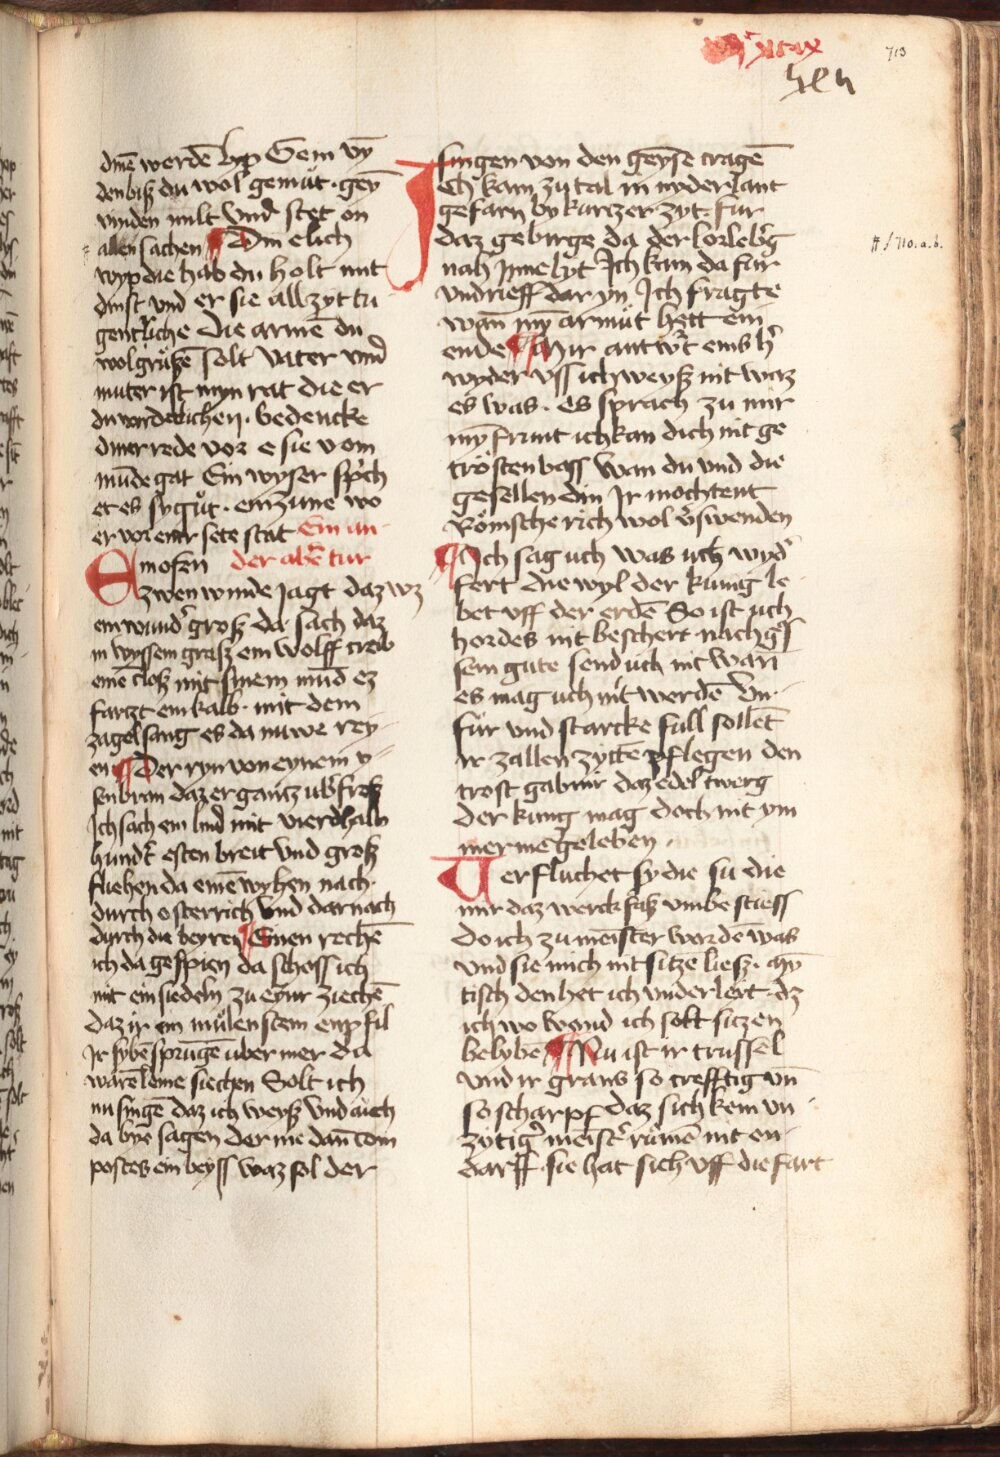 713
dinē werdē byp Gem vӯ
den biß du wol gemuͤt · gey
vinden milt vnd stet on
allen sachen Din elich
wyp die hab du holt mit
dinst vnd er sie all zyt tu
gentliche die armē du
wol gruͤßē solt Vater vnd
muter ist myn rat die er
du wirdeclichen · bedencke
diner rede vor e sie vom
mūde gat Ein wyser sp'ch
et es sy guͤt · ein zune wo
er vor einr sete stat Ein an
der abētur
E mosen
zwen winde Jagt daz wz
ein wund' groß da sach daz
in wyssem graß ein wolff treib
einē cloß mit sinem mūd ez
farzt ein kalb · mit dem
zagel sang es da nuwe rey
en Der ryn von eynem v
sen bran daz er gantz vb'froß
Ich sach ein lind mit vierdhalb
hundt' esten breit vnd groß
fliehen da einē wyhen nach ·
durch osterrich vnd darnach
durch die beyren Einen rechē
ich da gespien da schoss ich
mit ein siedeln zu eynr ziechē
daz ir ein muͤlen stein enpfil
Ir sybē sprūgē uber mer da
warē leme siechen Solt ich
nu singē daz ich weyß vnd auch
da bye sagen der nie dān com
postes ein beyss waz sol der
singen von den geysē tragē
Jch kam zu tal in nyderlant
gefarn by kurtzer zyt · fur
daz gebirge da der lorleb'g
nah inne lyt Ich kam da fur
vnd rieff dar yn Ich fragte
wan mӯ armuͤt hett ein
ende Mir antw't eins h'
wyder vss ich weyß nit waz
es was · es sprach zu mir
mӯ frunt ich kan dich nit ge
troͤsten bass Wan du vnd die
gesellen din Ir mochtent
Roͤmsche rich wol v'swenden
Ich sag uch was uch wyd'
fert die wyl der kunig le
bet vff der erdē So ist uch
hordes nit beschert nach g
sein gute send uch nit wan
es mag uch nit werdē Vn
fuͤr vnd starcke fall sollēt
ir zallen zyttē pflegen den
trost gab mir daz edel twerg
der kung mag doch nit ym
mer me geleben ·
Verfluchet sy die su die
mir daz werck faß vmbe stiess
Do ich zu meister wordē was
vnd sie mich nit sitzē ließ · an
tisch den het ich vnder lert · dz
ich wo wand ich solt sitzen
belybē Nu ist ir trussel
vnd ir grans so trefftig vn̄
so scharpf daz sich kein vn
zytig' meist' ruͤmē nit en
darff · sie hat sich vff die fart
# / 710. a. b.